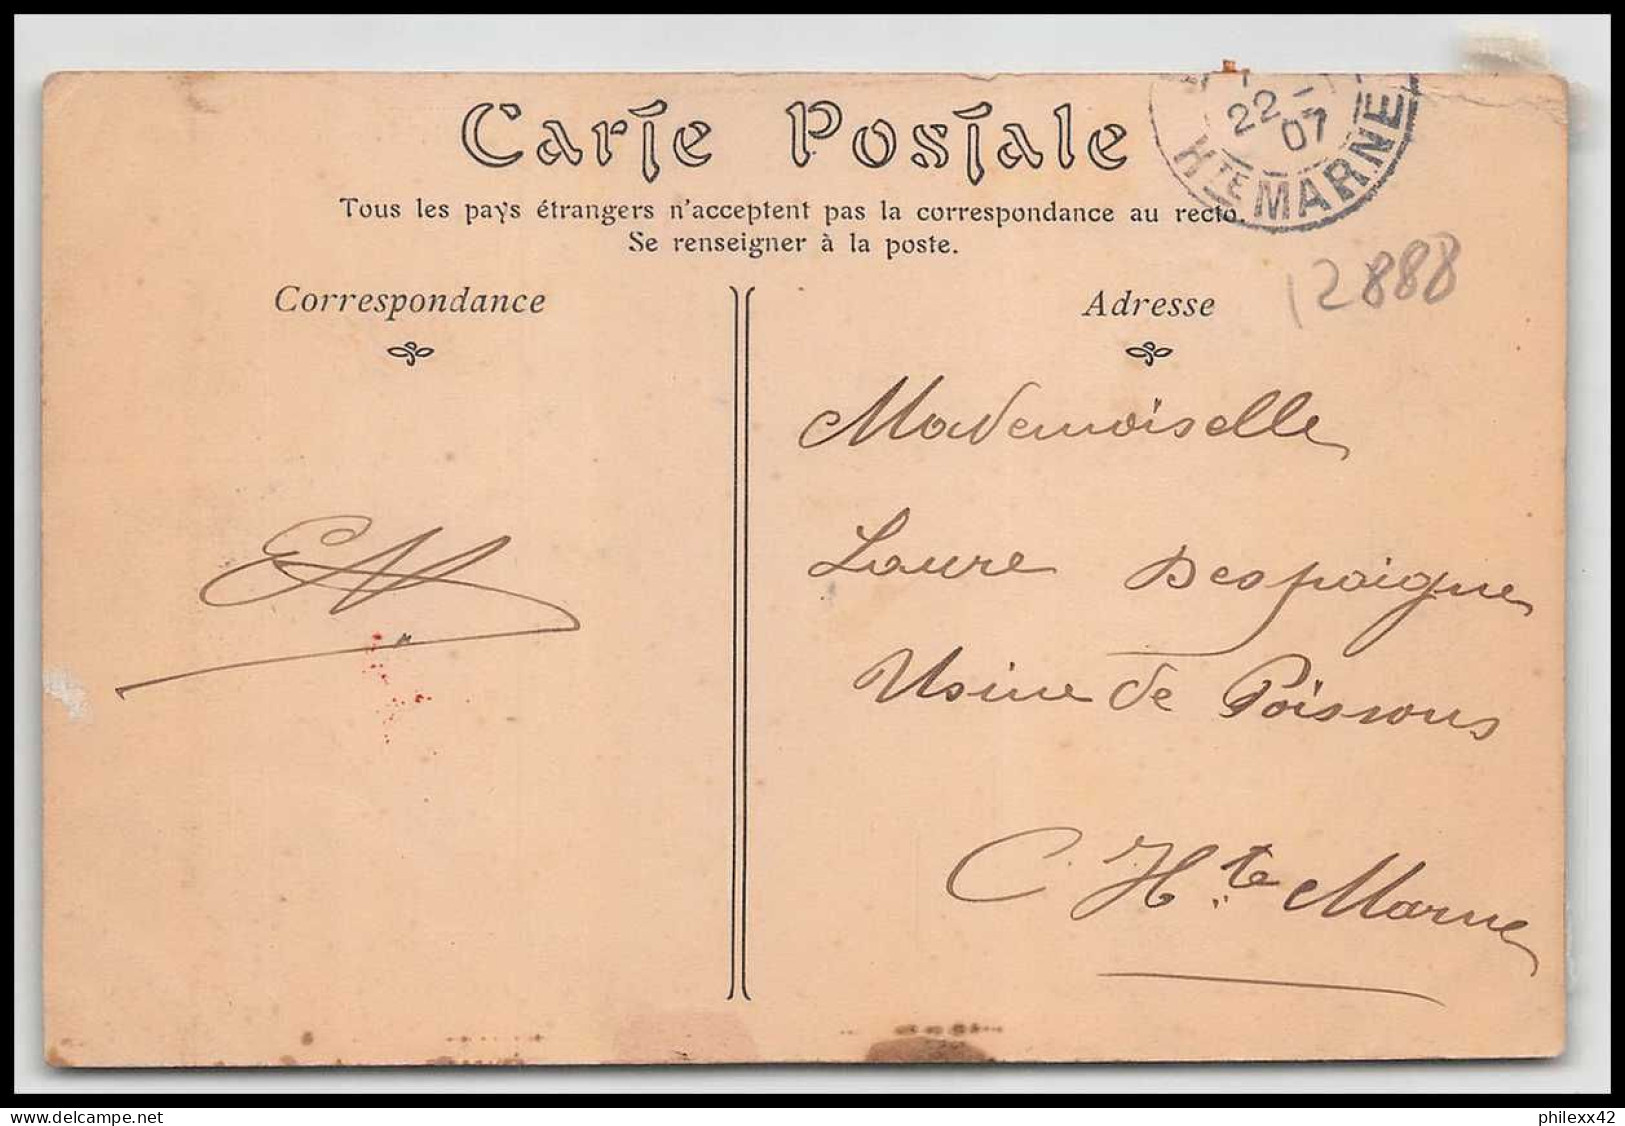 Carte Postale
22 - 1
07
Hte MARNE
Tous les pays étrangers n'acceptent pas la correspondance au recto.
Se renseigner à la poste.
12888
Correspondance
Adresse
Mademoiselle
Laure Despaigne
Usine de Poissons
Hte Marne
philexx42
www.delcampe.net